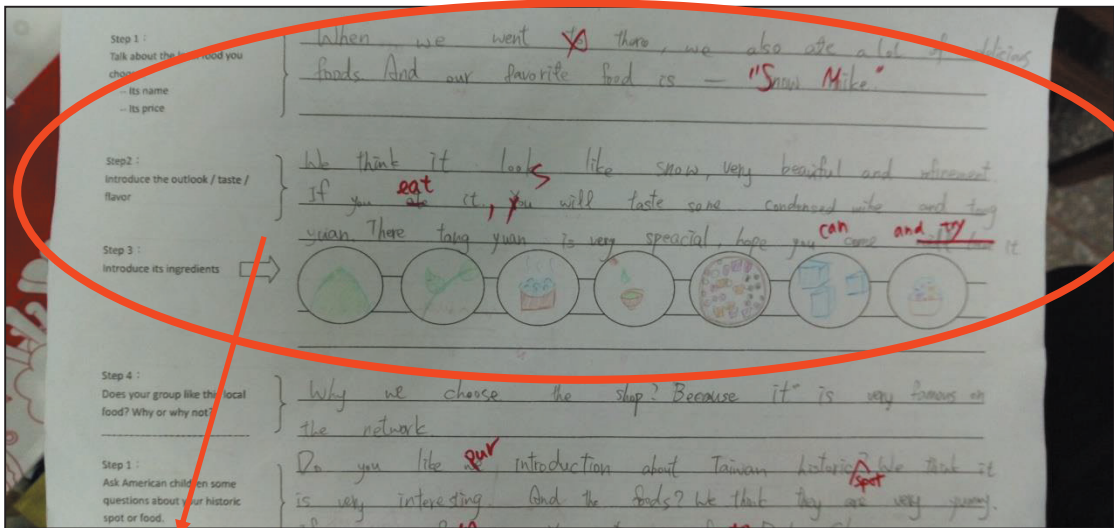 Step 1 :
Talk about the food you
-- Its name
-- Its price
When we went to there, we also ate a lot of delicious
foods. And our favorite food is — "Snow Mike."
Step2 :
Introduce the outlook / taste /
flavor
We think it looks like snow, very beaiful and refinement
If you eat it, you will taste some condensed and tang
yuan. There tang yuan is very speacial, hope you can come and try it
Step 3 :
Introduce its ingredients
Step 4 :
Does your group like this local
food? Why or why not?
Why we choose the shop? Because it" is very famous on
the network
Step 1 :
Ask American children some
questions about your historic
spot or food.
Do you like our introduction about Taiwan historic spot? We think it
is very interesting. And the foods? We think they are very yummy.